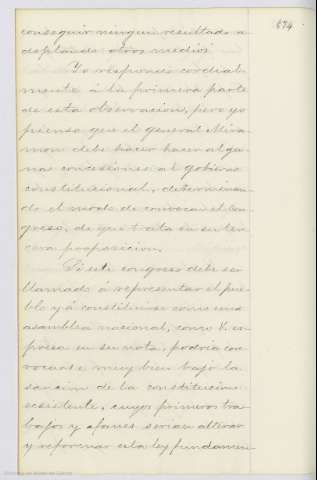 674
conseguir ningun resultado a
doptando otros medios.
Yo respondo cordial-
mente á la primera parte
de esta observacion, pero yo
pienso que el general Mira
mon debe hacer hacer algu-
nas concesiones al gobierno
constitucional, determinan-
do el modo de convocar el Con-
greso, de que trata en su ter-
cera proposicion.
Si este congreso debe ser
llamado á representar el pue-
blo y á constituirse como una
asamblea nacional, como V. es-
presa en su nota, podria con-
vocarse muy bien bajo la
sancion de la constitucion
ecsistente, cuyos primeros tra-
bajos y afanes serian alterar
y reformar esta ley fundamen-